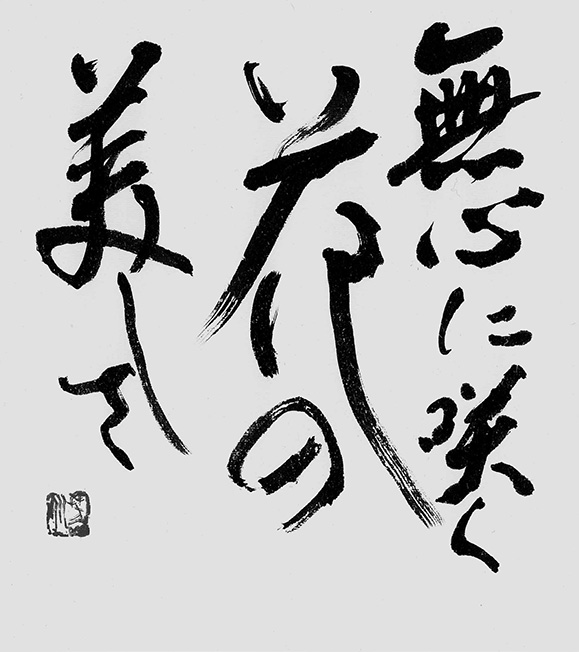 無心に咲く
花の
美しさ